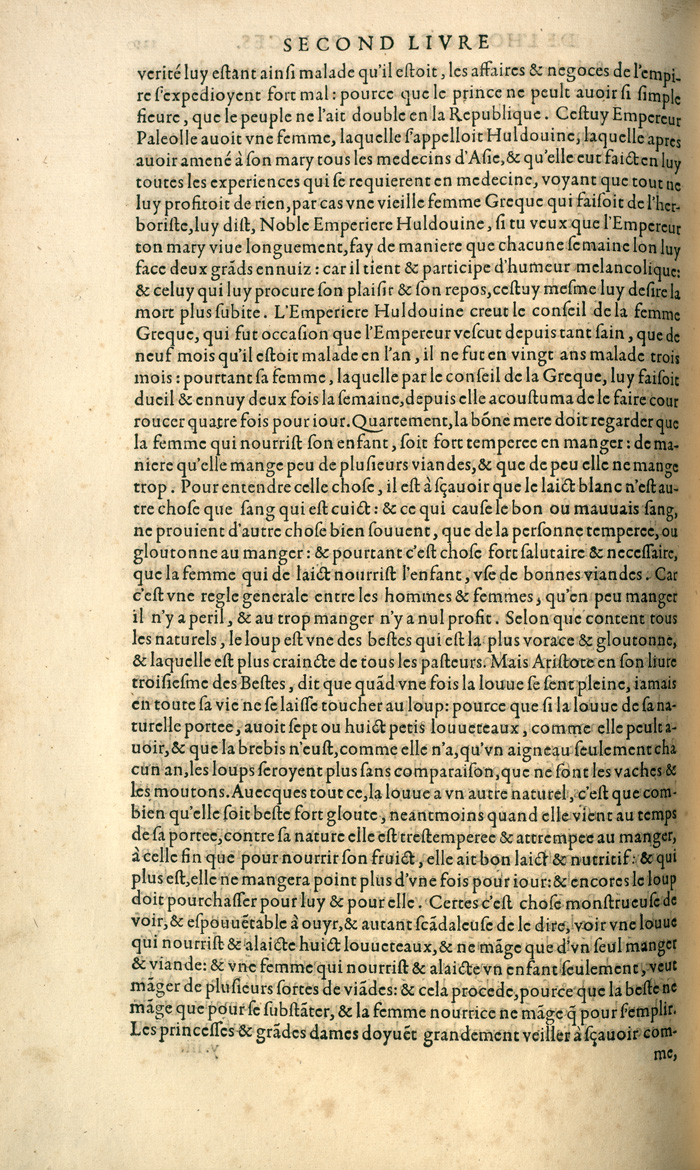 SECOND LIVRE
verité luy eſtant ainſi malade qu'il eſtoit, les affaires & negoces de l'empi-
re ſ'expedioyent fort mal: pource que le prince ne peult auoir ſi ſimple
fieure, que le peuple ne l'ait double en la Republique. Ceſtuy Empereur
Paleolle auoit vne femme, laquelle ſ'appelloit Huldouine, laquelle apres
auoir amené à ſon mary tous les medecins d'Aſie, & qu'elle eut faict en luy
toutes les experiences qui ſe requierent en medecine, voyant que tout ne
luy profitoit de rien, par cas vne vieille femme Greque qui faiſoit de l'her-
boriſte, luy diſt, Noble Emperiere Huldouine, ſi tu veux que l'Empereur
ton mary viue longuement, fay de maniere que chacune ſemaine lon luy
face deux grãds ennuiz: car il tient & participe d'humeur melancolique:
& celuy qui luy procure ſon plaiſir & ſon repos, ceſtuy meſme luy deſire la
mort plus ſubite. L'Emperiere Huldouine creut le conſeil de la femme
Greque, qui fut occaſion que l'Empereur veſcut depuis tant ſain, que de
neuf mois qu'il eſtoit malade en l'an, il ne fut en vingt ans malade trois
mois: pourtant ſa femme, laquelle par le conſeil de la Greque, luy faiſoit
dueil & ennuy deux fois la ſemaine, depuis elle acouſtuma de le faire cour
roucer quatre fois pour iour. Quartement, la bõne mere doit regarder que
la femme qui nourriſt ſon enfant, ſoit fort temperee en manger: de ma-
niere qu'elle mange peu de pluſieurs viandes, & que de peu elle ne mange
trop. Pour entendre celle choſe, il eſt à ſçauoir que le laict blanc n'eſt au-
tre choſe que ſang qui eſt cuict: & ce qui cauſe le bon ou mauuais ſang,
ne prouient d'autre choſe bien ſouuent, que de la perſonne temperee, ou
gloutonne au manger: & pourtant c'eſt choſe fort ſalutaire & neceſſaire,
que la femme qui de laict nourriſt l'enfant, vſe de bonnes viandes. Car
c'eſt vne regle generale entre les hommes & femmes, qu'en peu manger
il n'y a peril, & au trop manger n'y a nul profit. Selon que content tous
les naturels, le loup eſt vne des beſtes qui eſt la plus vorace & gloutonne,
& laquelle eſt plus craincte de tous les paſteurs. Mais Ariſtote en ſon liure
troiſieſme des Beſtes, dit que quãd vne fois la louue ſe ſent pleine, iamais
en toute ſa vie ne ſe laiſſe toucher au loup: pource que ſi la louue de ſa na-
turelle portee, auoit ſept ou huict petis louueteaux, comme elle peult a-
uoir, & que la brebis n'euſt, comme elle n'a, qu'vn aigneau ſeulement cha
cun an, les loups ſeroyent plus ſans comparaiſon, que ne ſont les vaches &
les moutons. Auecques tout ce, la louue a vn autre naturel, c'eſt que com-
bien qu'elle ſoit beſte fort gloute, neantmoins quand elle vient au temps
de ſa portee, contre ſa nature elle eſt treſtemperee & attrempee au manger,
à celle fin que pour nourrir ſon fruict, elle ait bon laict & nutritif: & qui
plus eſt, elle ne mangera point plus d'vne fois pour iour: & encores le loup
doit pourchaſſer pour luy & pour elle. Certes c'eſt choſe monſtrueuſe de
voir, & eſpouuẽtable à ouyr, & autant ſcãdaleuſe de le dire, voir vne louue
qui nourriſt & alaicte huict louueteaux, & ne mãge que d'vn ſeul manger
& viande: & vne femme qui nourriſt & alaicte vn enfant ſeulement, veut
mãger de pluſieurs ſortes de viãdes: & cela procede, pource que la beſte ne
mãge que pour ſe ſubſtãter, & la femme nourrice ne mãge q̃ pour ſ'emplir.
Les princeſſes & grãdes dames doyuẽt grandement veiller à ſçauoir com-
me,